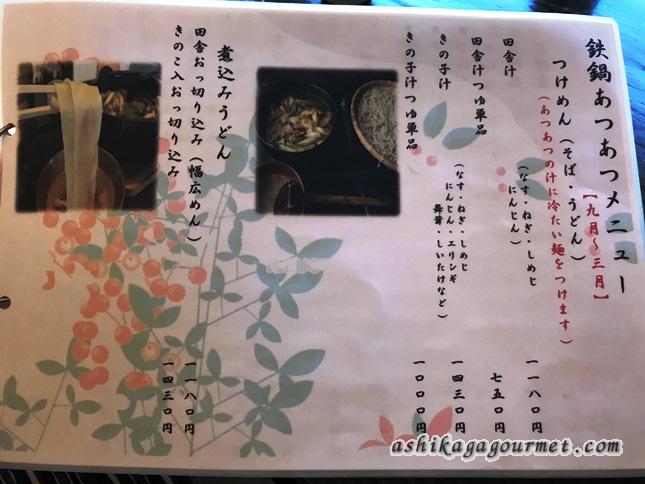 鉄鍋あつあつメニュー
【九月～三月】
つけめん(そば・うどん)
(あつあつの汁に冷たい麺をつけます)
田舎汁
(なす・ねぎ・しめじ
にんじん)
一一八〇円
田舎汁つゆ単品
七五〇円
きの子汁
(なす・ねぎ・しめじ
にんじん・エリンギ
舞茸・しいたけなど)
一四三〇円
きの子汁つゆ単品
一〇〇〇円
煮込みうどん
田舎おっ切り込み(幅広めん)
一一八〇円
きのこ入おっ切り込み
一四三〇円
ashikagagourmet.com